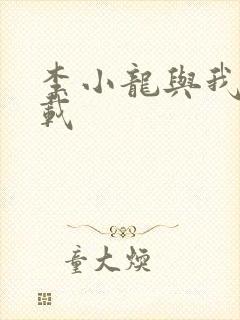 李小龍與我
載
童大煥